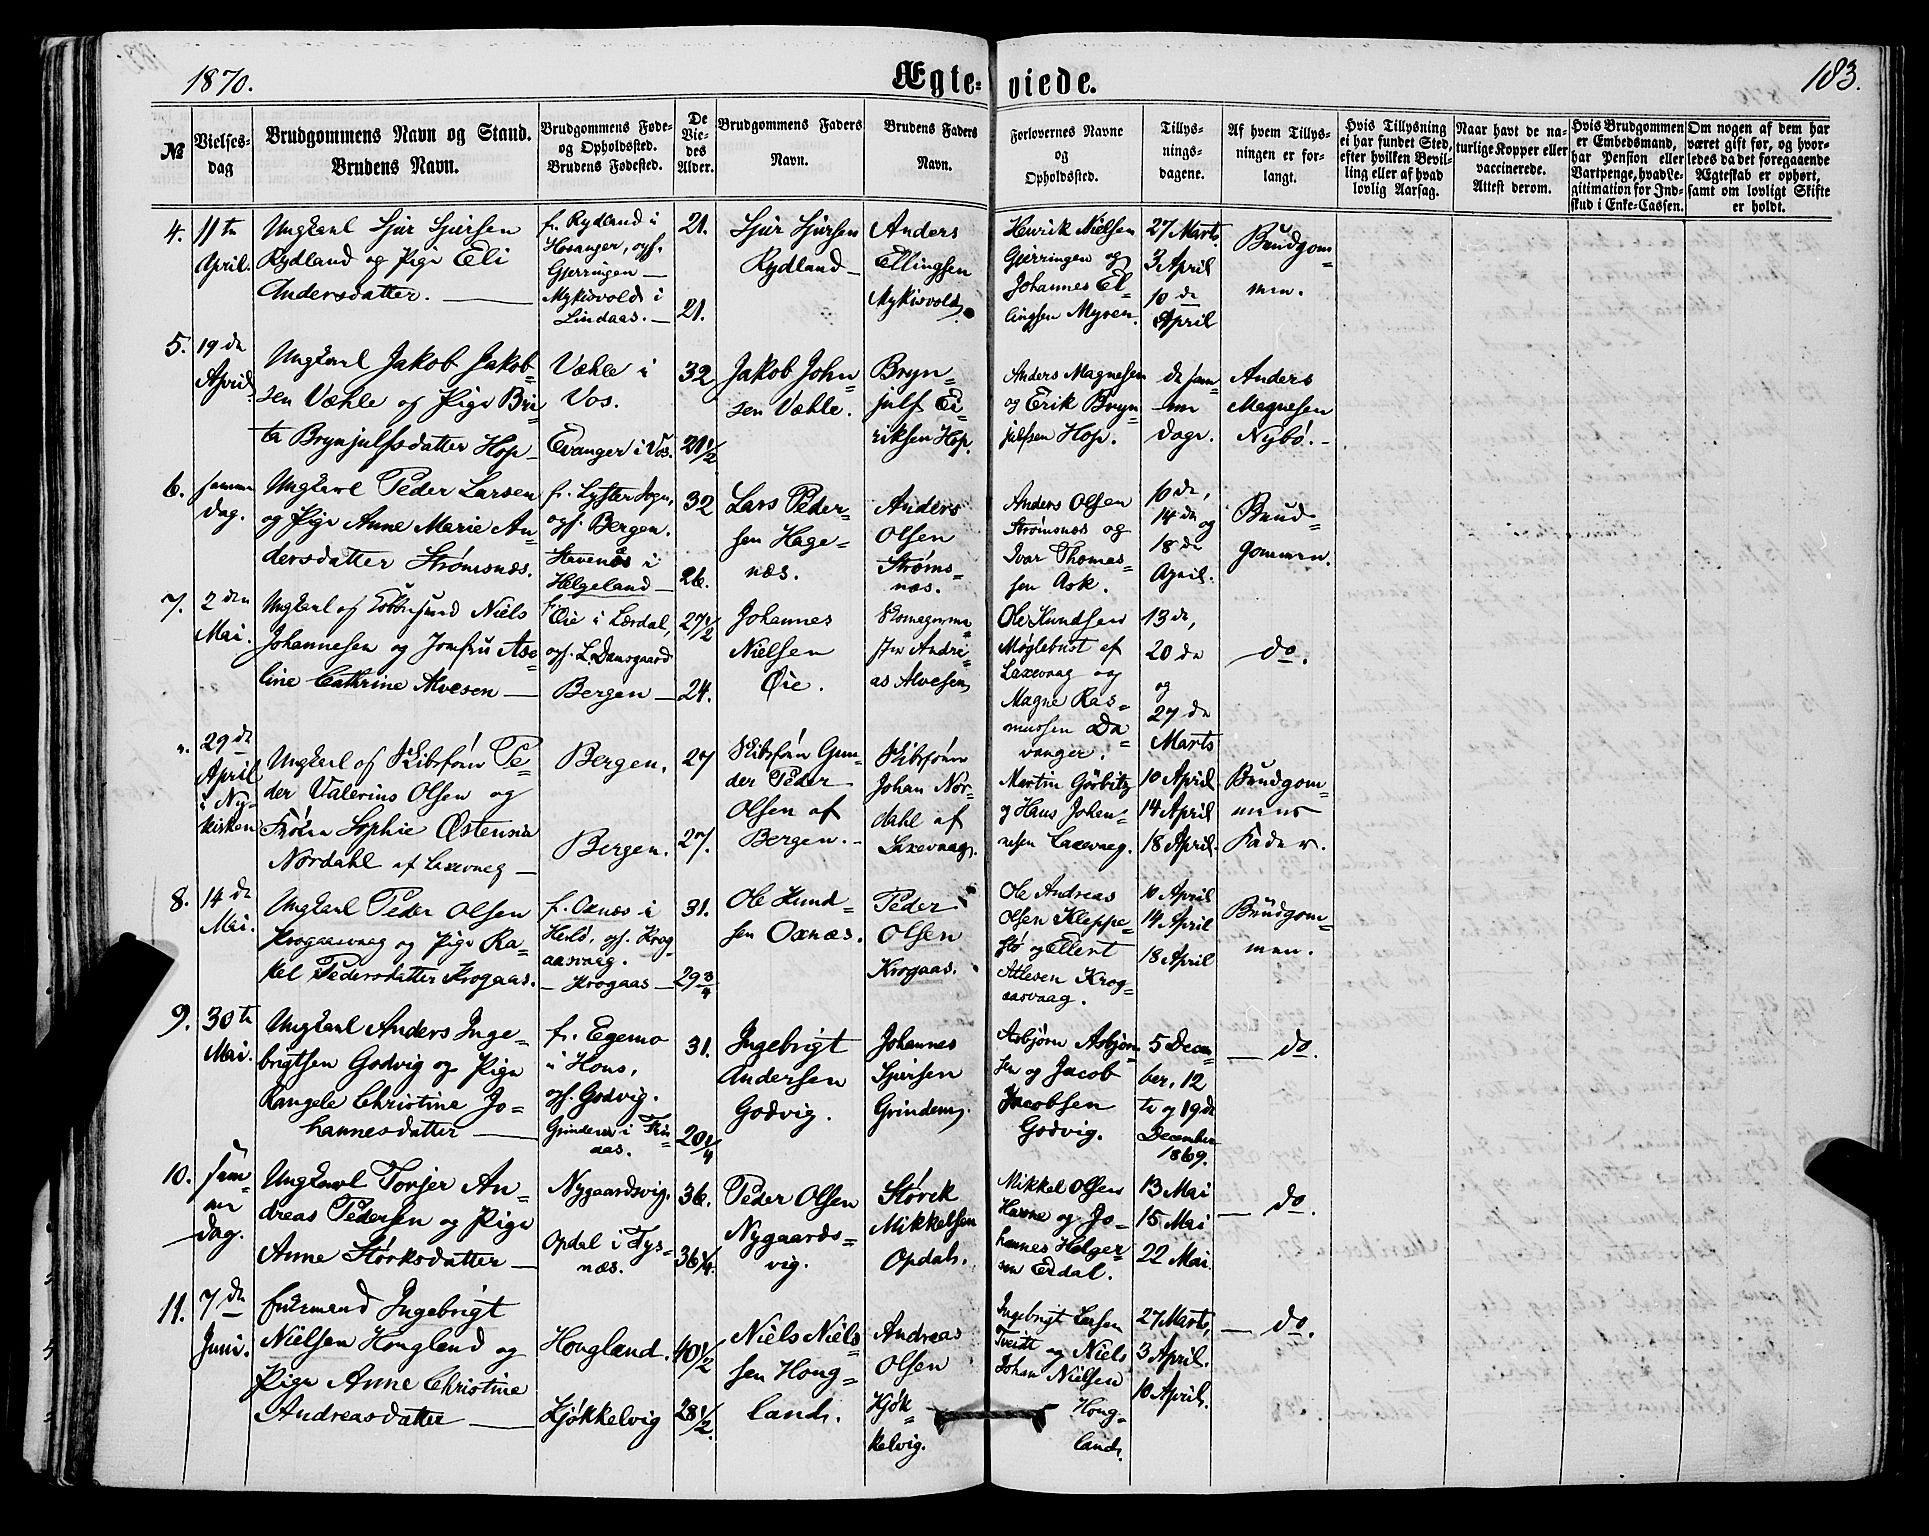 1870.
Ægteviede.
183.
№
Vielses-
dag
Brudgommens Navn og Stand.
Brudens Navn.
Brudgommens Føde-
og Opholdssted.
Brudens Fødested.
De
Vie-
des
Alder.
Brudgommens Faders
Navn.
Brudens Faders
Navn.
Forlovernes Navne
og
Opholdssted.
Tillys-
nings-
dagene.
Af hvem Tillys-
ningen er for-
langt.
Hvis Tillysning
ei har fundet Sted,
efter hvilken Bevil-
ling eller af hvad
lovlig Aarsag.
Naar havt de na-
turlige Kopper eller
vaccinerede.
Attest derom.
Hvis Brudgommen
er Embedsmand,
har Pension eller
Vartpenge, hvad Le-
gitimation for Ind-
skud i Enke-Cassen.
Om nogen af dem har
været gift før, og hvor-
ledes da det foregaaende
Ægteskab er ophørt,
samt om lovligt Skifte
er holdt.
4.
11te
April.
Ungkarl Sjur Sjursen
Rydland og Pige Eli
Andersdatter.
f. Rydland i
Hosanger, opf.
Gjerringen
Mykisvold i
Lindaas.
21.
21.
Sjur Sjursen
Rydland
Anders
Ellingsen
Mykisvold
Henrik Nielsen
Gjerringen og
Johannes El-
lingsen Myren.
27 Marts
3 April
10 de
April
Brudgom-
men.
5.
19 de
April
Ungkarl Jakob Jakob-
sen Væhle og Pige Bri-
ta Brynjulfsdatter Hop
Væhle i
Vos.
Evanger i Vos.
32
21 1/2
Jakob John-
sen Væhle.
Bryn-
julf Ei-
riksen Hop.
Anders Magnesen
og Erik Bryn-
julfsen Hop.
de sam-
me
Dage.
Anders
Magnesen
Nybø.
6.
samme
Dag.
Ungkarl Peder Larsen
og Pige Anne Marie An-
dersdatter Strømsnæs.
f. Lyster Sogn,
opf. Bergen.
i
Helgeland
32
26.
Lars Peder-
sen Hage-
næs.
Anders
Olsen
Strøms-
næs.
Anders Olsen
Strømsnæs og
Ivar Thomes-
sen Ask.
10 de,
14 de og
18 de
April.
Brud-
gommen.
7.
2 den
Mai.
Ungkarl og Niels
Johannesen og Jomfru Ase-
line Cathrine Alvesen
f. Øie i Lærdal,
opf. L. Damsgaard
Bergen
27 1/2
24.
Johannes
Nielsen
Øie.
Andre-
as Alvesen
Ole Knudsen
Møglebust af
Laxevaag og
Magne Ras-
mussen Da-
vanger.
13 de,
20 de
og
27 de
Marts
do.
".
29 de
April
i Ny-
kirken
Ungkarl og Skibsfører Pe-
der Valerius Olsen og
Frøken Sophie Østensia
Nordahl af Laxevaag
Bergen.
Bergen.
27
27.
Skibsfører Gun-
der Peder
Olsen af
Bergen.
Skibsfører
Johan Nor-
dahl af
Laxevaag.
Martin Görbitz
og Hans Johan-
nesen Laxevaag.
10 April
14 April
18 April.
Brudgom-
mens
Fader.
8.
14 de
Mai.
Ungkarl Peder Olsen
Krogaasvaag og Pige Ra-
kel Pedersdatter Krogaas.
f. Oxnæs i
Herlø, opf. Krog-
aasvaag.
Krogaas
31.
29 3/4
Ole Knud-
sen Oxnæs.
Peder
Olsen
Krogaas.
Ole Andreas
Olsen Kleppe-
stø og Ellert
Atlesen Krog-
aasvaag.
10 April
14 April
18 April
Brudgom-
men.
9.
30 te
Mai.
Ungkarl Anders Inge-
brigtsen Godvig og Pige
Rangele Christine Jo-
hannesdatter
f. Egemo
i Hous,
opf. Godvig.
Grindem i Fin-
aas.
31.
20 1/4
Ingebrigt
Andersen
Godvig.
Johannes
Sjursen
Grindem.
Asbjørn Asbjørn-
sen og Jacob
Jacobsen
Godvig.
5 Decem-
ber, 12
te og 19 de
December
1869.
do.
10.
sam-
me
Dag.
Ungkarl Torjer An-
dreas Pedersen og Pige
Anne Størksdatter
Nygaardsvig.
Opdal i Tys-
næs.
36.
36 1/4.
Peder Olsen
Nygaards-
vig.
Størek
Mikkelsen
Opdal.
Mikkel Olsen
Havne og Jo-
hannes Helger-
sen Erdal.
13 Mai
15 Mai
22 Mai
do.
11.
7 de
Juni.
Enkemand Ingebrigt
Nielsen Hougland og
Pige Anne Christine
Andreasdatter
Hougland.
Kjøkkelvig
40 1/2
28 1/2.
Niels Niels-
sen Houg-
land.
Andreas
Olsen
Kjøk-
kelvig.
Ingebrigt Larsen
Tveidt og Niels
Johan Nielsen
Houg-
land.
27 Marts,
3 April.
10 April.
do.